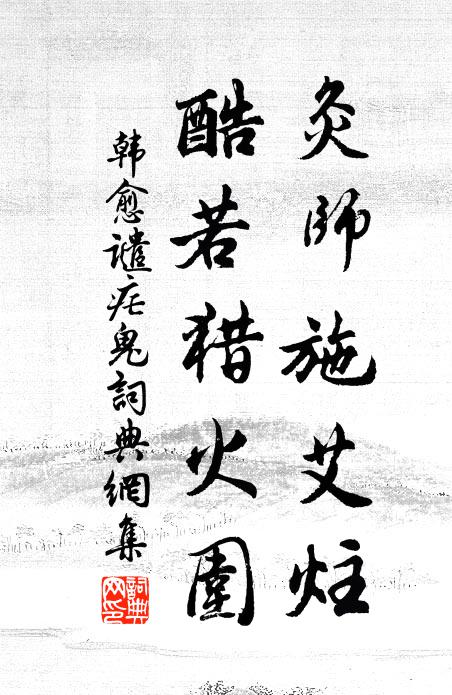 灸師施艾炷
酷若猎火圍
韩愈譴疟鬼詞典網集
詞典网印